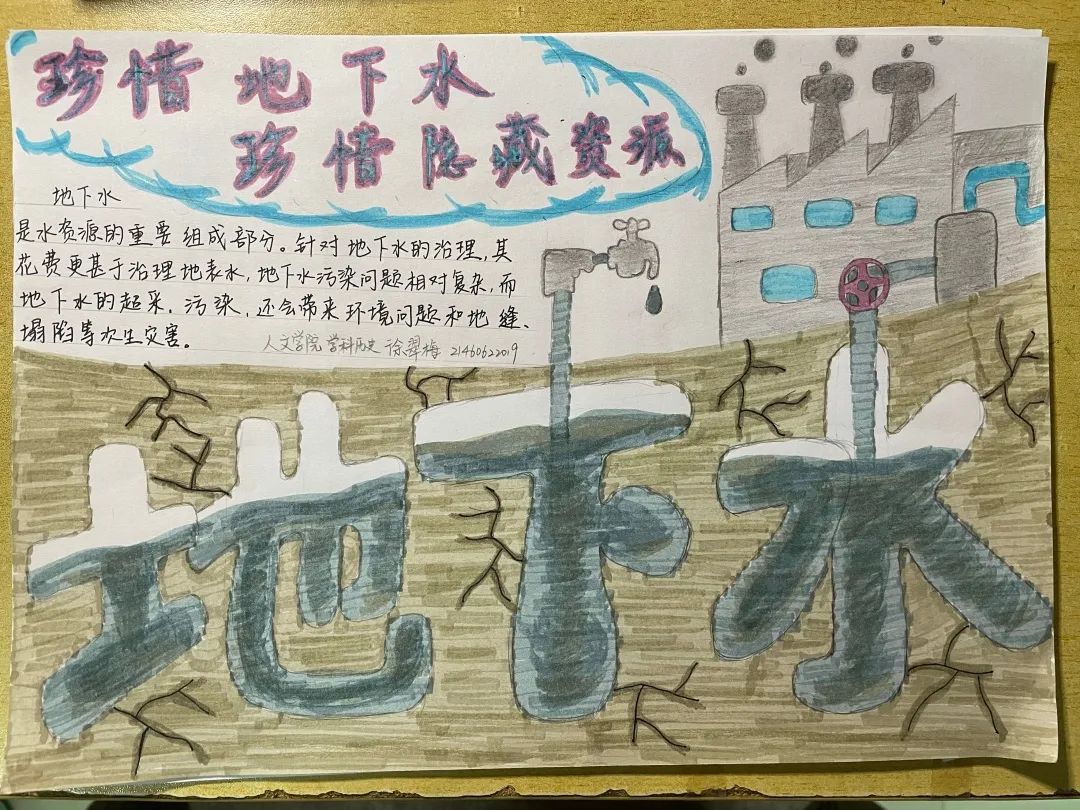 珍惜地下水
珍惜隐藏资源
地下水
是水资源的重要组成部分。针对地下水的治理,其
花费更甚于治理地表水,地下水污染问题相对复杂,而
地下水的超采.污染,还会带来环境问题和地缝、
塌陷等次生灾害。
人文学院 学科历史 徐翠梅 21460622019
地下水